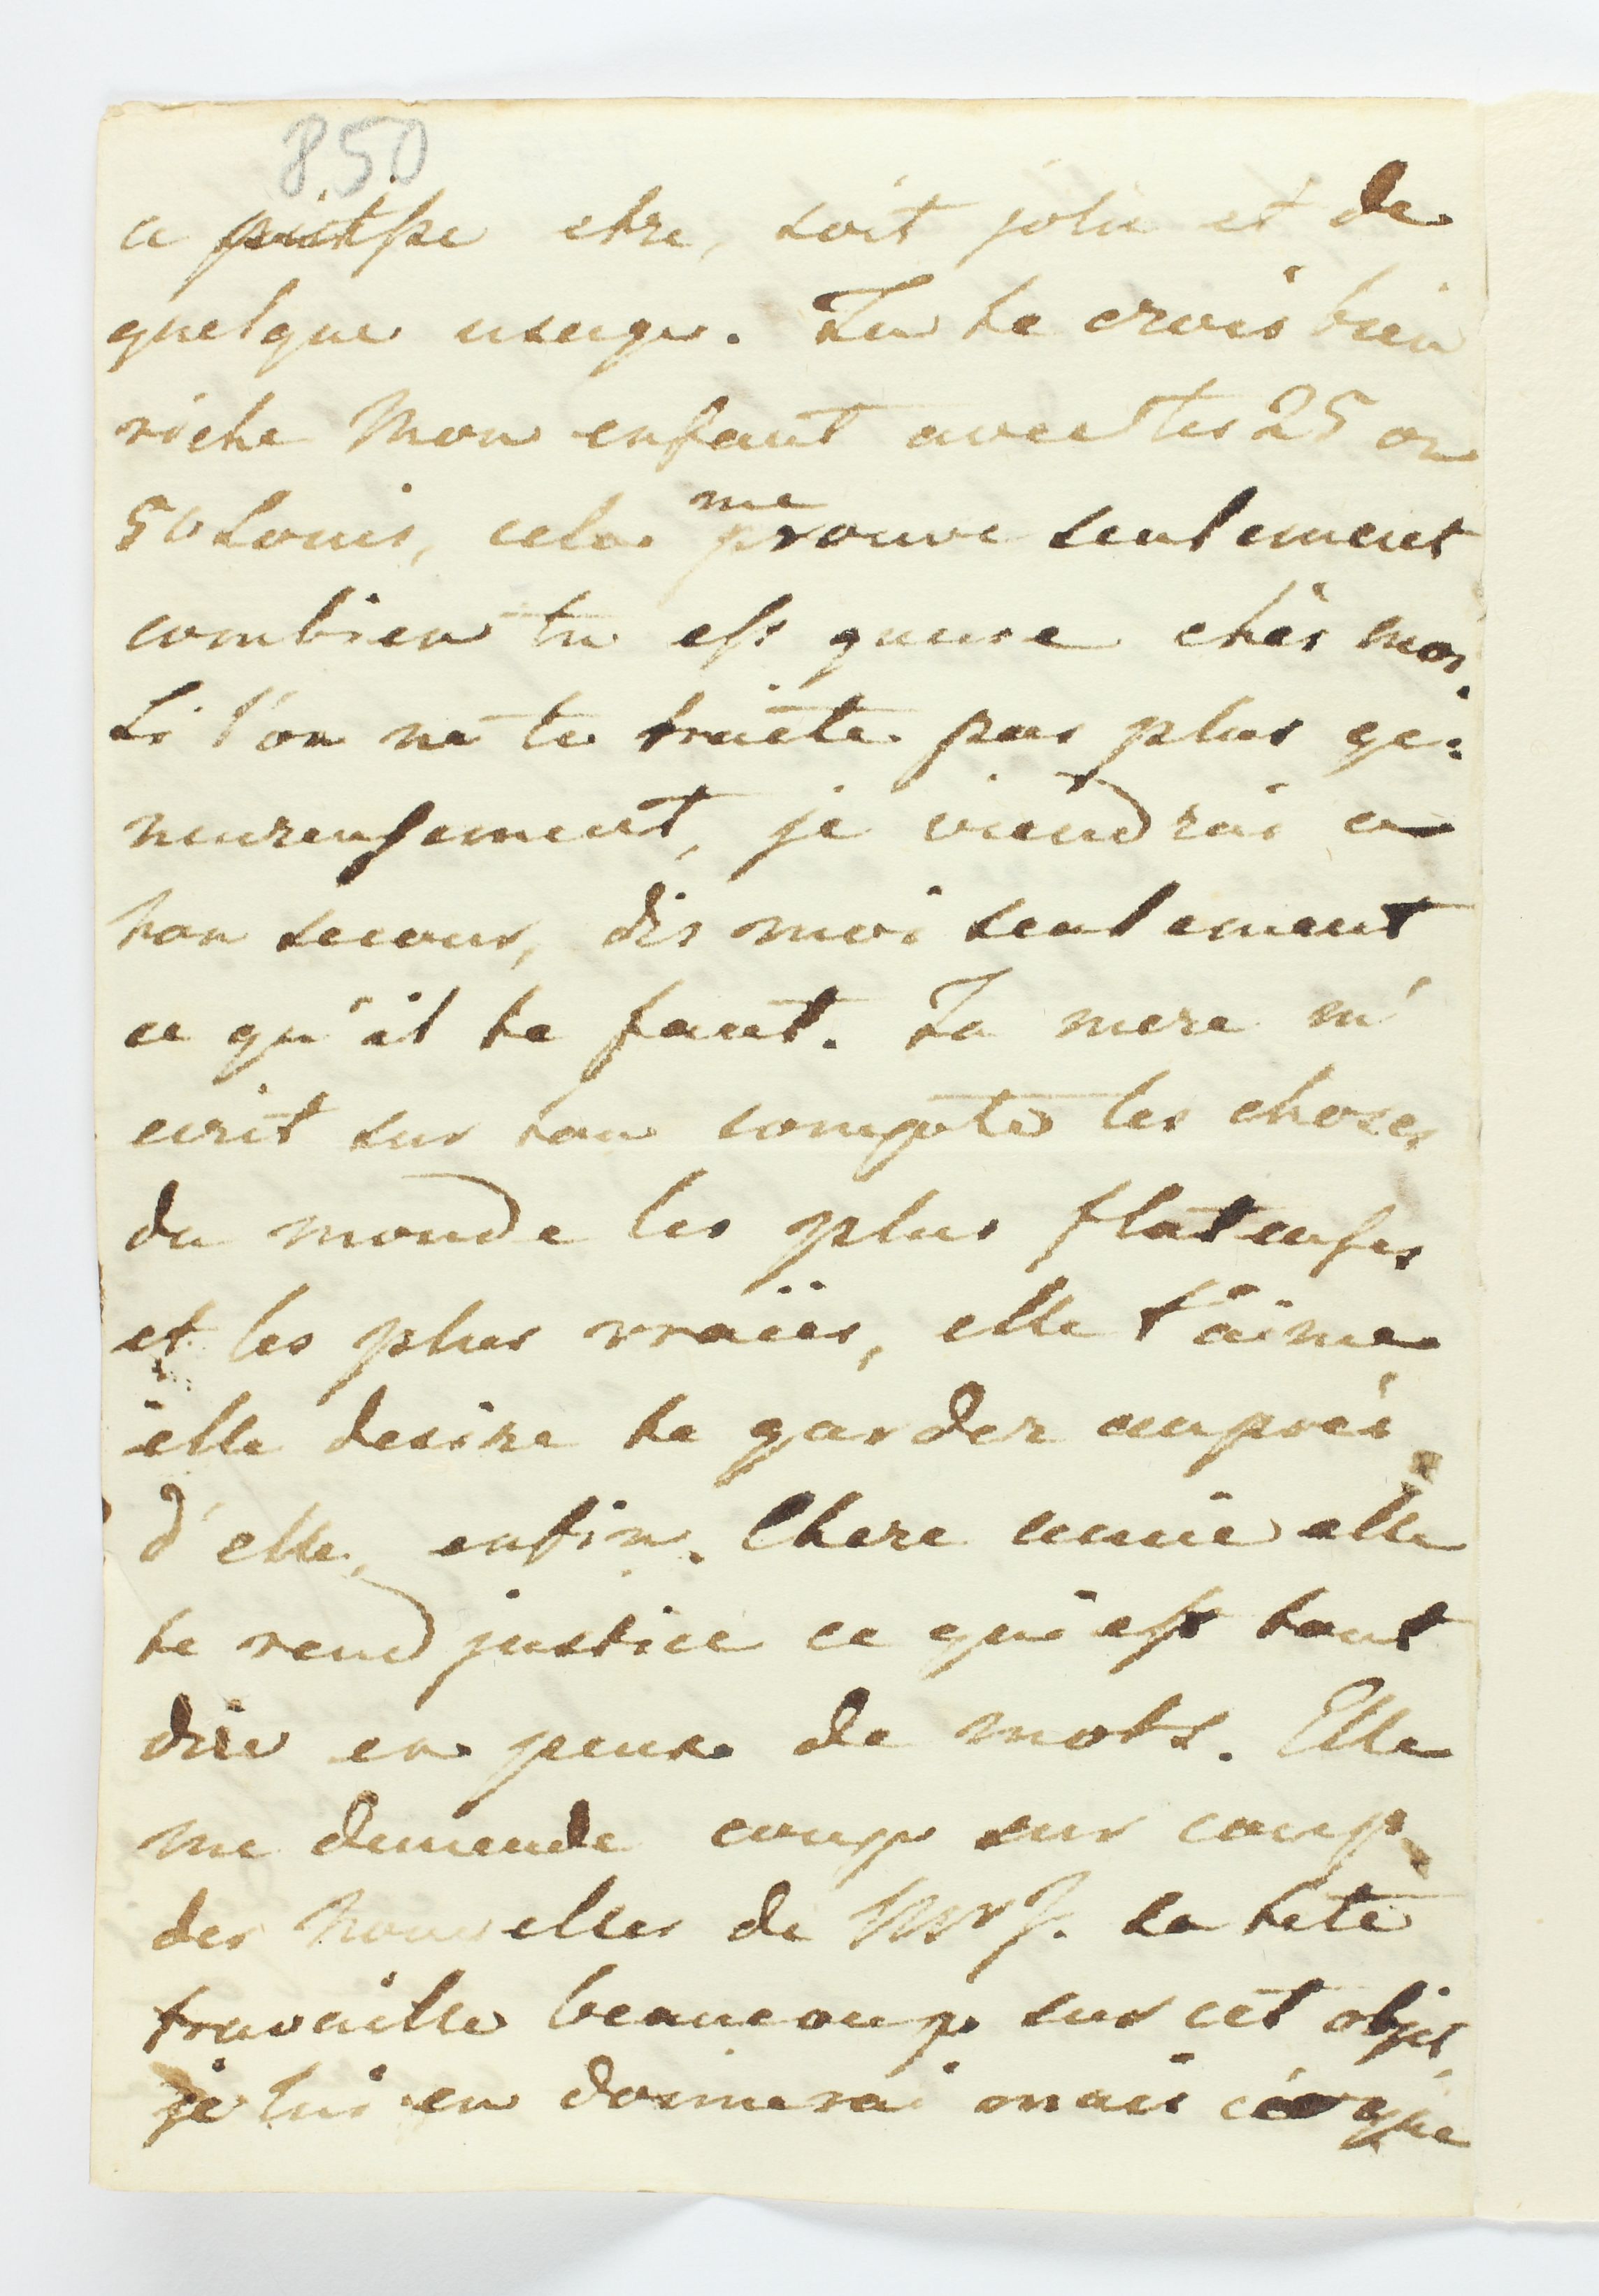 850
a puisse etre, soit jolie et de
quelque usage. Tu te crois bien
riche Mon enfant avec tes 25 ou
50 Louis, cela me prouve seulement
combien tu ess gueuse chès moi.
Si l'on ne te traiete pas plus ge:
neureusement, je viendrai a
ton secour, dis moi seulement
ce qu'il te faut. Ta mere m'
ecrit sur ton compte les choses
du monde les plus flateuses
et les plus vraiies, elle t'aime
elle desire te garder auprès
d'elle, enfin. Chere amie elle
te rend justice ce qui est tout
dire en peux de mots. Elle
me demende coup sur coup
des nouvelles de Mr J. sa tete
travaille beaucoup sur cet objet
je lui en donnerai mais que